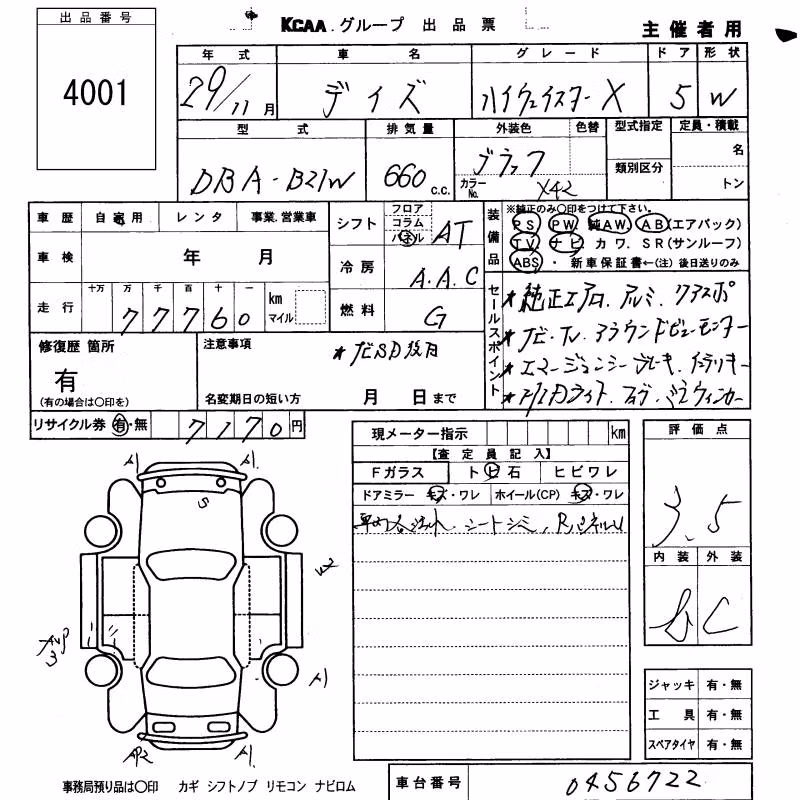 出品番号
4001
KCAA.グループ 出品票
主催者用
年式 車名 グレード ドア 形状
29/11月 デイズ ハイウェイスターX 5 W
型式 排気量 外装色 色替 型式指定 定員・積載
DBA-B21W 660 c.c. ブラック 名
カラーNo. X42 類別区分 トン
車歴 自家用 レンタ 事業.営業車
シフト フロア コラム パネル AT
装備品 ※純正のみ〇印をつけて下さい。
PS PW. 純AW. AB(エアバック)
TV. ナビ. カワ. SR(サンルーフ)
ABS ・ 新車保証書←(注)後日送りのみ
車検 年 月
冷房 A.A.C
走行 十万 万 千 百 十 一 km マイル
77760
燃料 G
セールスポイント
★純正エアロ.アルミ.
★ナビ.TV.アラウンドビューモニター
★エマージェンシーブレーキ.
修復歴 箇所
有
(有の場合は〇印を)
注意事項
名変期日の短い方 月 日まで
リサイクル券 有・無 7170円
現メーター指示 km
【査定員記入】
Fガラス トビ石 ヒビワレ
ドアミラー キズ・ワレ ホイール(CP) キズ・ワレ
シートシミ.
評価点
3.5
内装 外装
b C
A1 A1
S
A1
AP2 A1
ジャッキ 有・無
工具 有・無
スペアタイヤ 有・無
事務局預り品は〇印 カギ シフトノブ リモコン ナビロム
車台番号 0456722